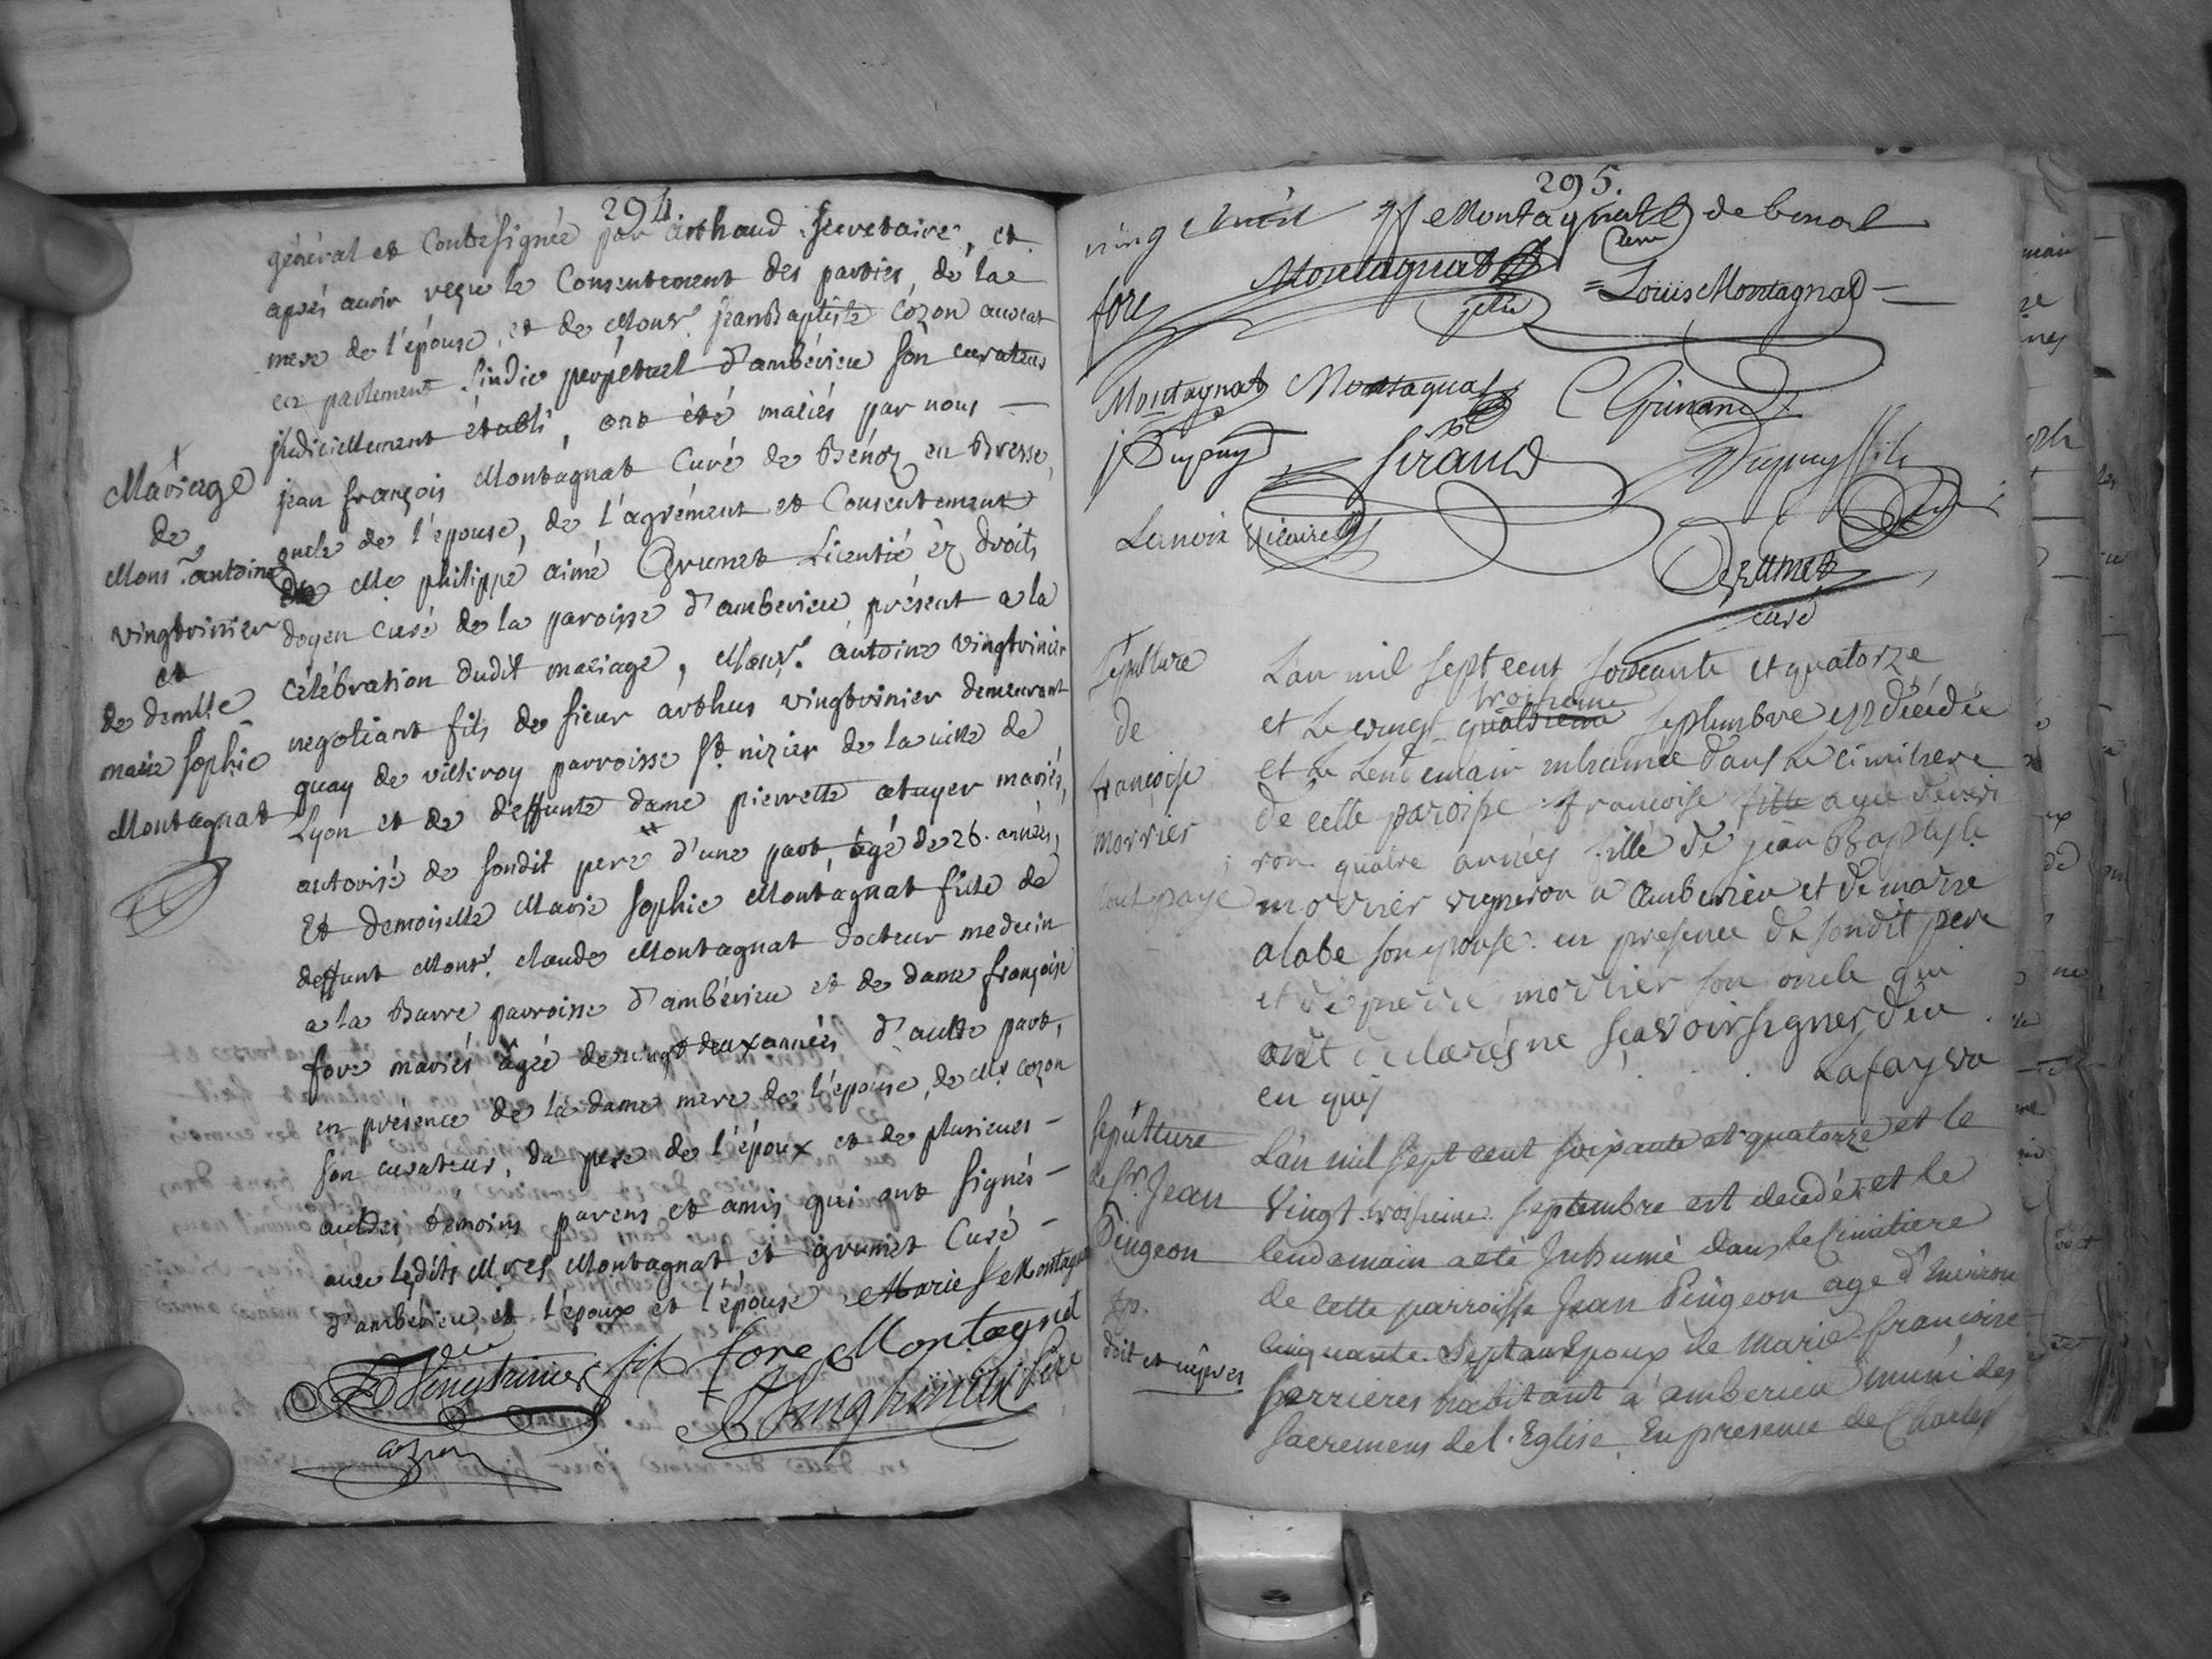 294
général et Contresignée par arthaud Secretaire, et
aprés avoir reçu le Consentement des parties, de la
mere de l'épouse, et de Monsr. jean Baptiste Cozon avocat
en parlement Sindic perpétuel d'ambérieu son curateur
judiciellement établi, ont été mariés par nous —
jean françois Montagnat Curé de Bénoz en Bresse,
oncle de l'épouse, de l'agrément et Consentement
de Me philippe aimé Grumet Licentié èz droits
doyen curé de la paroisse d'amberieu présent a la
célébration dudit mariage, Monsr. antoine vingtrinier
negotiant fils de sieur arthus vingtrinier demeurant
quay de villeroy parroisse St. nizier de la ville de
Lyon et de deffunte dame pierrette atuyer mariés,
autorisé de sondit pere d'une part, âgé de 26. années,
Et demoiselle Marie Sophie Montagnat fille de
deffunt Monsr. claude Montagnat docteur medecin
a la Barre parroisse d'ambérieu et de dame françoise
fore mariés âgée de vingt deux années d'autre part,
en présence de la dame mere de l'épouse, de Mr cozon
son curateur, du pere de l'époux et de plusieurs —
autres témoins parens et amis qui ont signés —
avec lesdits Mres Montagnat et grumet Curé —
d'amberieu et l'époux et l'épouse Marie S Montagnat
Mariage
de
Monsr. antoine
vingtrinier
et
de demlle
marie sophie
Montagnat
Vingtrinier fils fore Montagnat
Vingtrinier Pere
cozon
295.
Montagnat de benost
fore Montagnat = Louis Montagnat —
Montagnat Montagnat Grinand
j Dupuy Sirand Dupuy fils
Lanoix vicaire
Grumet
curé
Sépulture
de
francoise
morrier
tout payé
L'an mil sept cent soixante et quatorze
troisieme
et le vingt quatrieme septembre est décédée
et le lendemain inhumée dans le cimitiere
de cette paroisse francoise fille agée denvi
ron quatre années fille de jean Baptyste
morrier vigneron a Amberieu et de marie
alabe son epouse en presence de sondit pere
et de pierre morrier son oncle qui
ont declarés ne sçavoir signer de ce
en quis Lafay va
Sepulture
de Sr. Jean
Pingeon
L'an mil sept cent soixante et quatorze et le
vingt troisieme septembre est decedé et le
lendemain a eté Inhumé dans le Cimitiere
de cette parroisse Jean Pingeon age d'Environ
cinquante. Sept ans Epoux de Marie francoise
Serrieres habitant a amberieu muni des
Sacremens de l'Eglise En presence de Charles